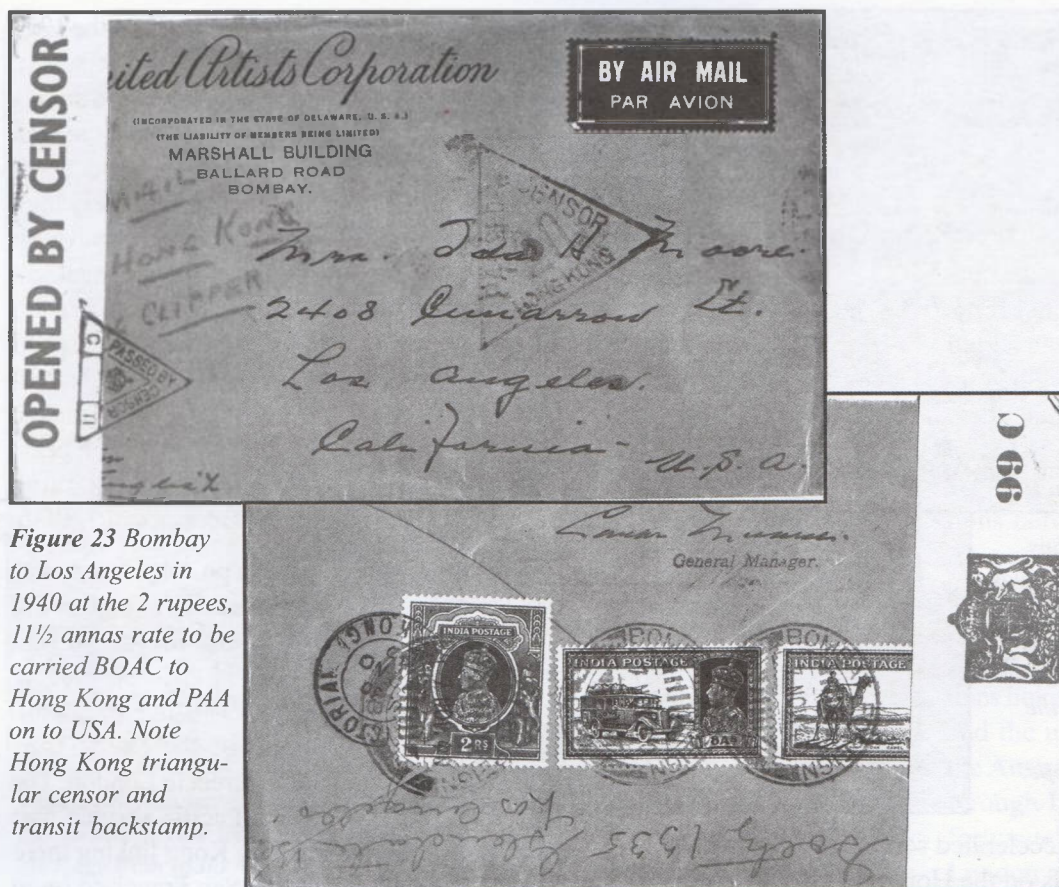 OPENED BY CENSOR
ited Artists Corporation
(INCORPORATED IN THE STATE OF DELAWARE, U. S. A.)
(THE LIABILITY OF MEMBERS BEING LIMITED)
MARSHALL BUILDING
BALLARD ROAD
BOMBAY.
BY AIR MAIL
PAR AVION
HONG KONG
CLIPPER
CENSOR
HONG KONG
PASSED BY
CENSOR
C
Mrs. Ida H Moore.
2408 Cimarron St.
Los Angeles.
California
U.S.A.
C 66
General Manager.
INDIA POSTAGE
2 RS
INDIA POSTAGE
INDIA POSTAGE
1335 Glendale
Los Angeles
Figure 23 Bombay
to Los Angeles in
1940 at the 2 rupees,
11½ annas rate to be
carried BOAC to
Hong Kong and PAA
on to USA. Note
Hong Kong triangu-
lar censor and
transit backstamp.